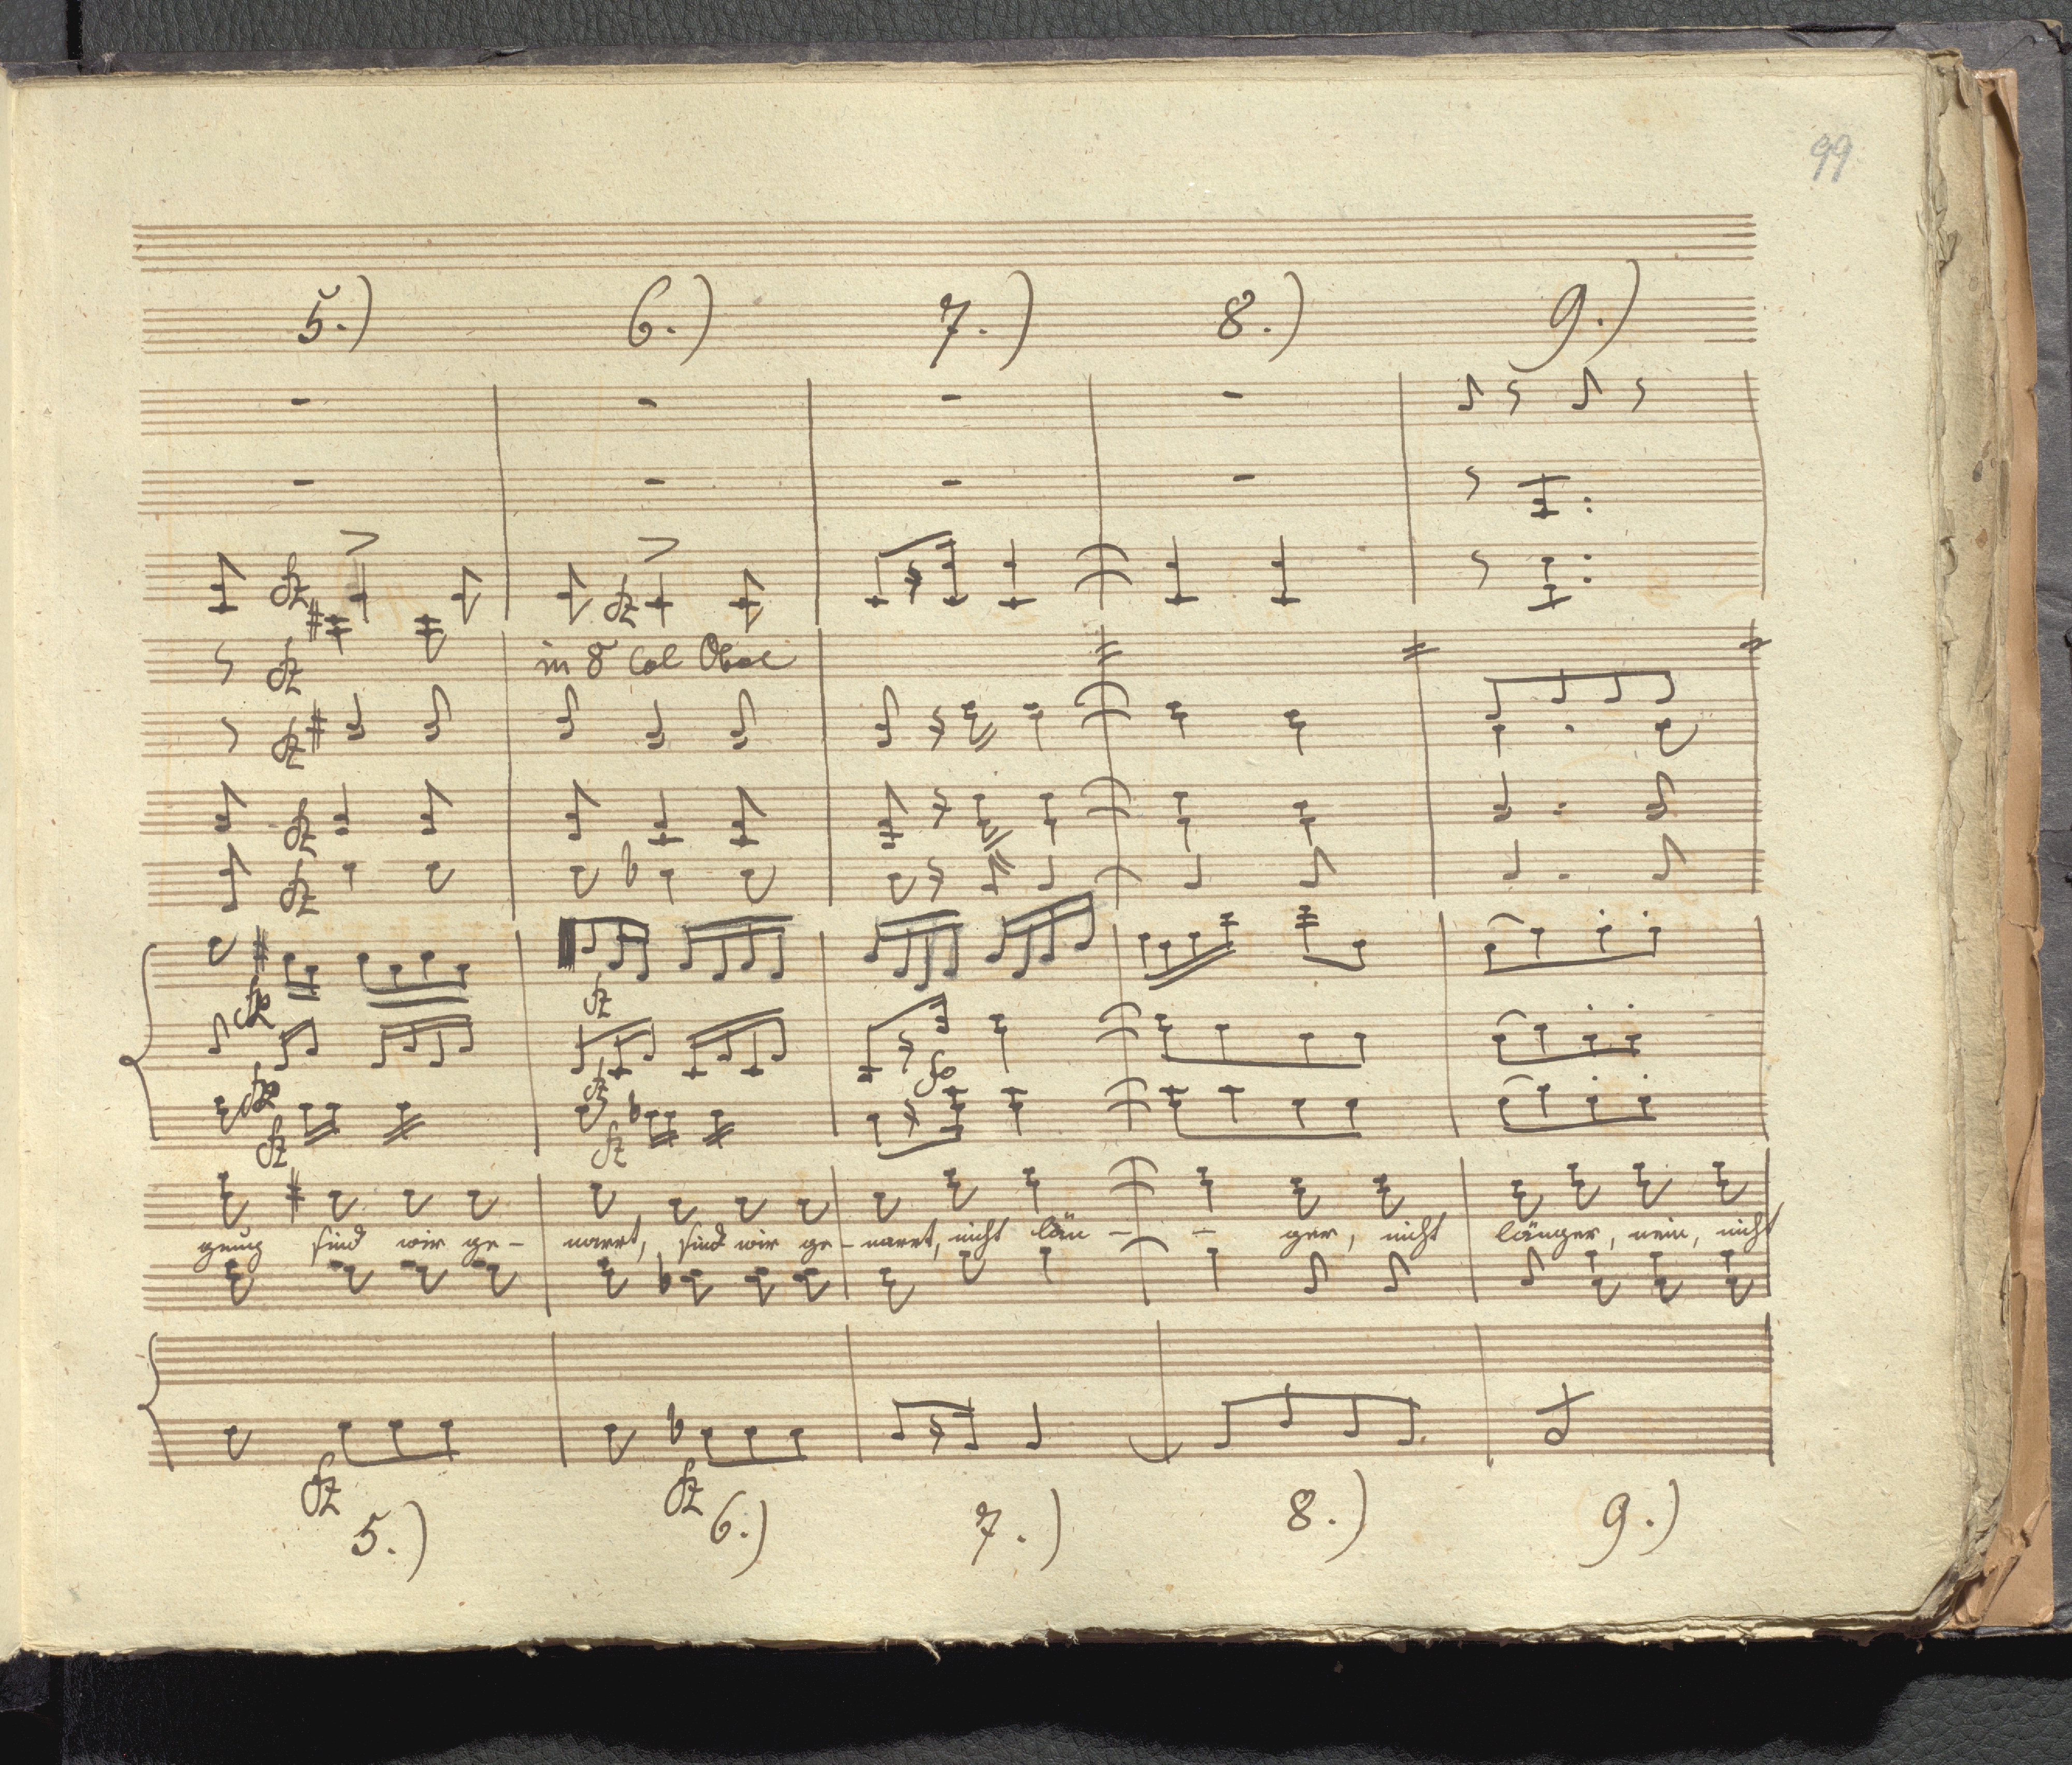 99
5.) 6.) 7.) 8.) 9.)
sz sz
sz in 8 Col Oboe
sz
sz
sz
sz
sz fp
sz
genug sind wir ge- narrt, sind wir ge- narrt, nicht län- - ger, nicht länger, nein, nicht
sz sz
5.) 6.) 7.) 8.) 9.)